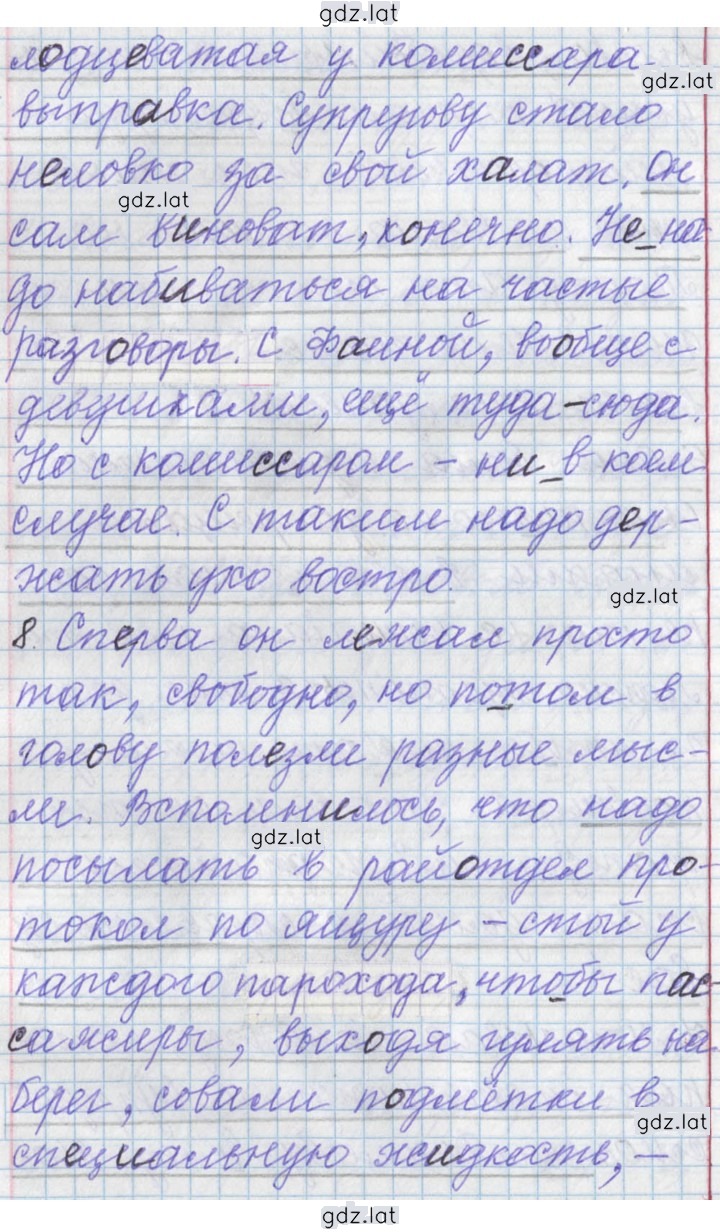 gdz.lat
лодцеватая у комиссара
gdz.lat
выправка. Супругову стало
неловко за свой халат. Он
gdz.lat
сам виноват, конечно. Не на-
до набиваться на частые
разговоры. С Фаиной, вообще с
девушками, ещё туда-сюда.
Но с комиссаром - ни в коем
случае. С таким надо дер-
жать ухо востро.
gdz.lat
8. Сперва он лежал просто
так, свободно, но потом в
голову полезли разные мыс-
ли. Вспомнилось, что надо
gdz.lat
посылать в райотдел про-
токол по ящуру - стой у
каждого парохода, чтобы пас-
сажиры, выходя гулять на
берег, совали подмётки в
gdz.lat
специальную жидкость, -
gdz.lat